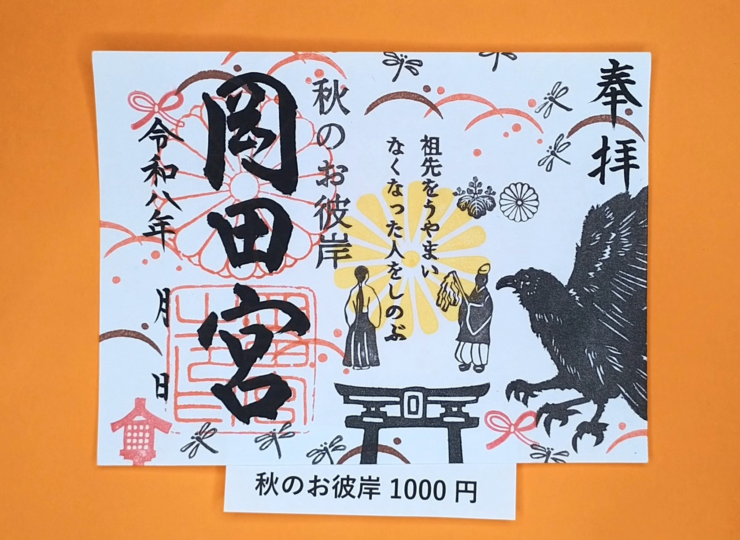 奉拝
祖先をうやまい
なくなった人をしのぶ
秋のお彼岸
岡田宮
令和八年 月 日
秋のお彼岸 1000 円